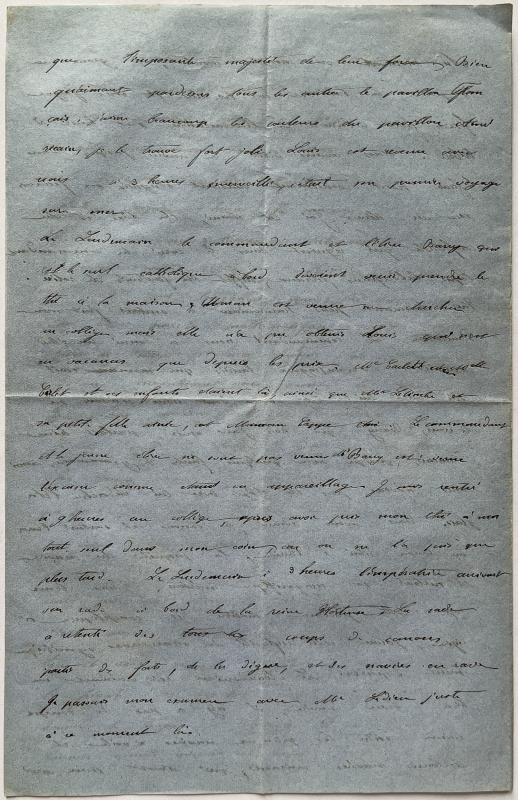 que l'imposante majesté de leur force, bien
qu'aimant par dessus tous les autres le pavillon fran
çais j'aime beaucoup les couleurs du pavillon améri
cain, je le trouve fort joli. Louis est revenu avec
nous à 3 heures émerveillé c'était son premier voyage
sur mer
Le Lendemain le commandant et l'élève Barry qui
est le seul catholique à bord devaient venir prendre le
thé à la maison, Maman est venue me chercher
au collège mais elle n'a pu obtenir Louis qui n'est
en vacances que depuis les prix. Mr
et ses enfants étaient là ainsi que Mme et
sa petite fille et Maman. Le commandant
et le jeune élève ne sont pas venus
comme étant en appareillage Je suis rentré
à 9 heures au collège, après avoir pris mon thé à moi
tout seul dans mon coin, car on ne le prit que
plus tard. Le Lendemain à 3 heures l'impératrice arrivait
sur rade à bord de la reine Hortense. La rade
a retenti des tous les coups de canons
partis des forts, de la digue, et des navires en rade
Je passais mon examen avec Mr juste
à ce moment là.